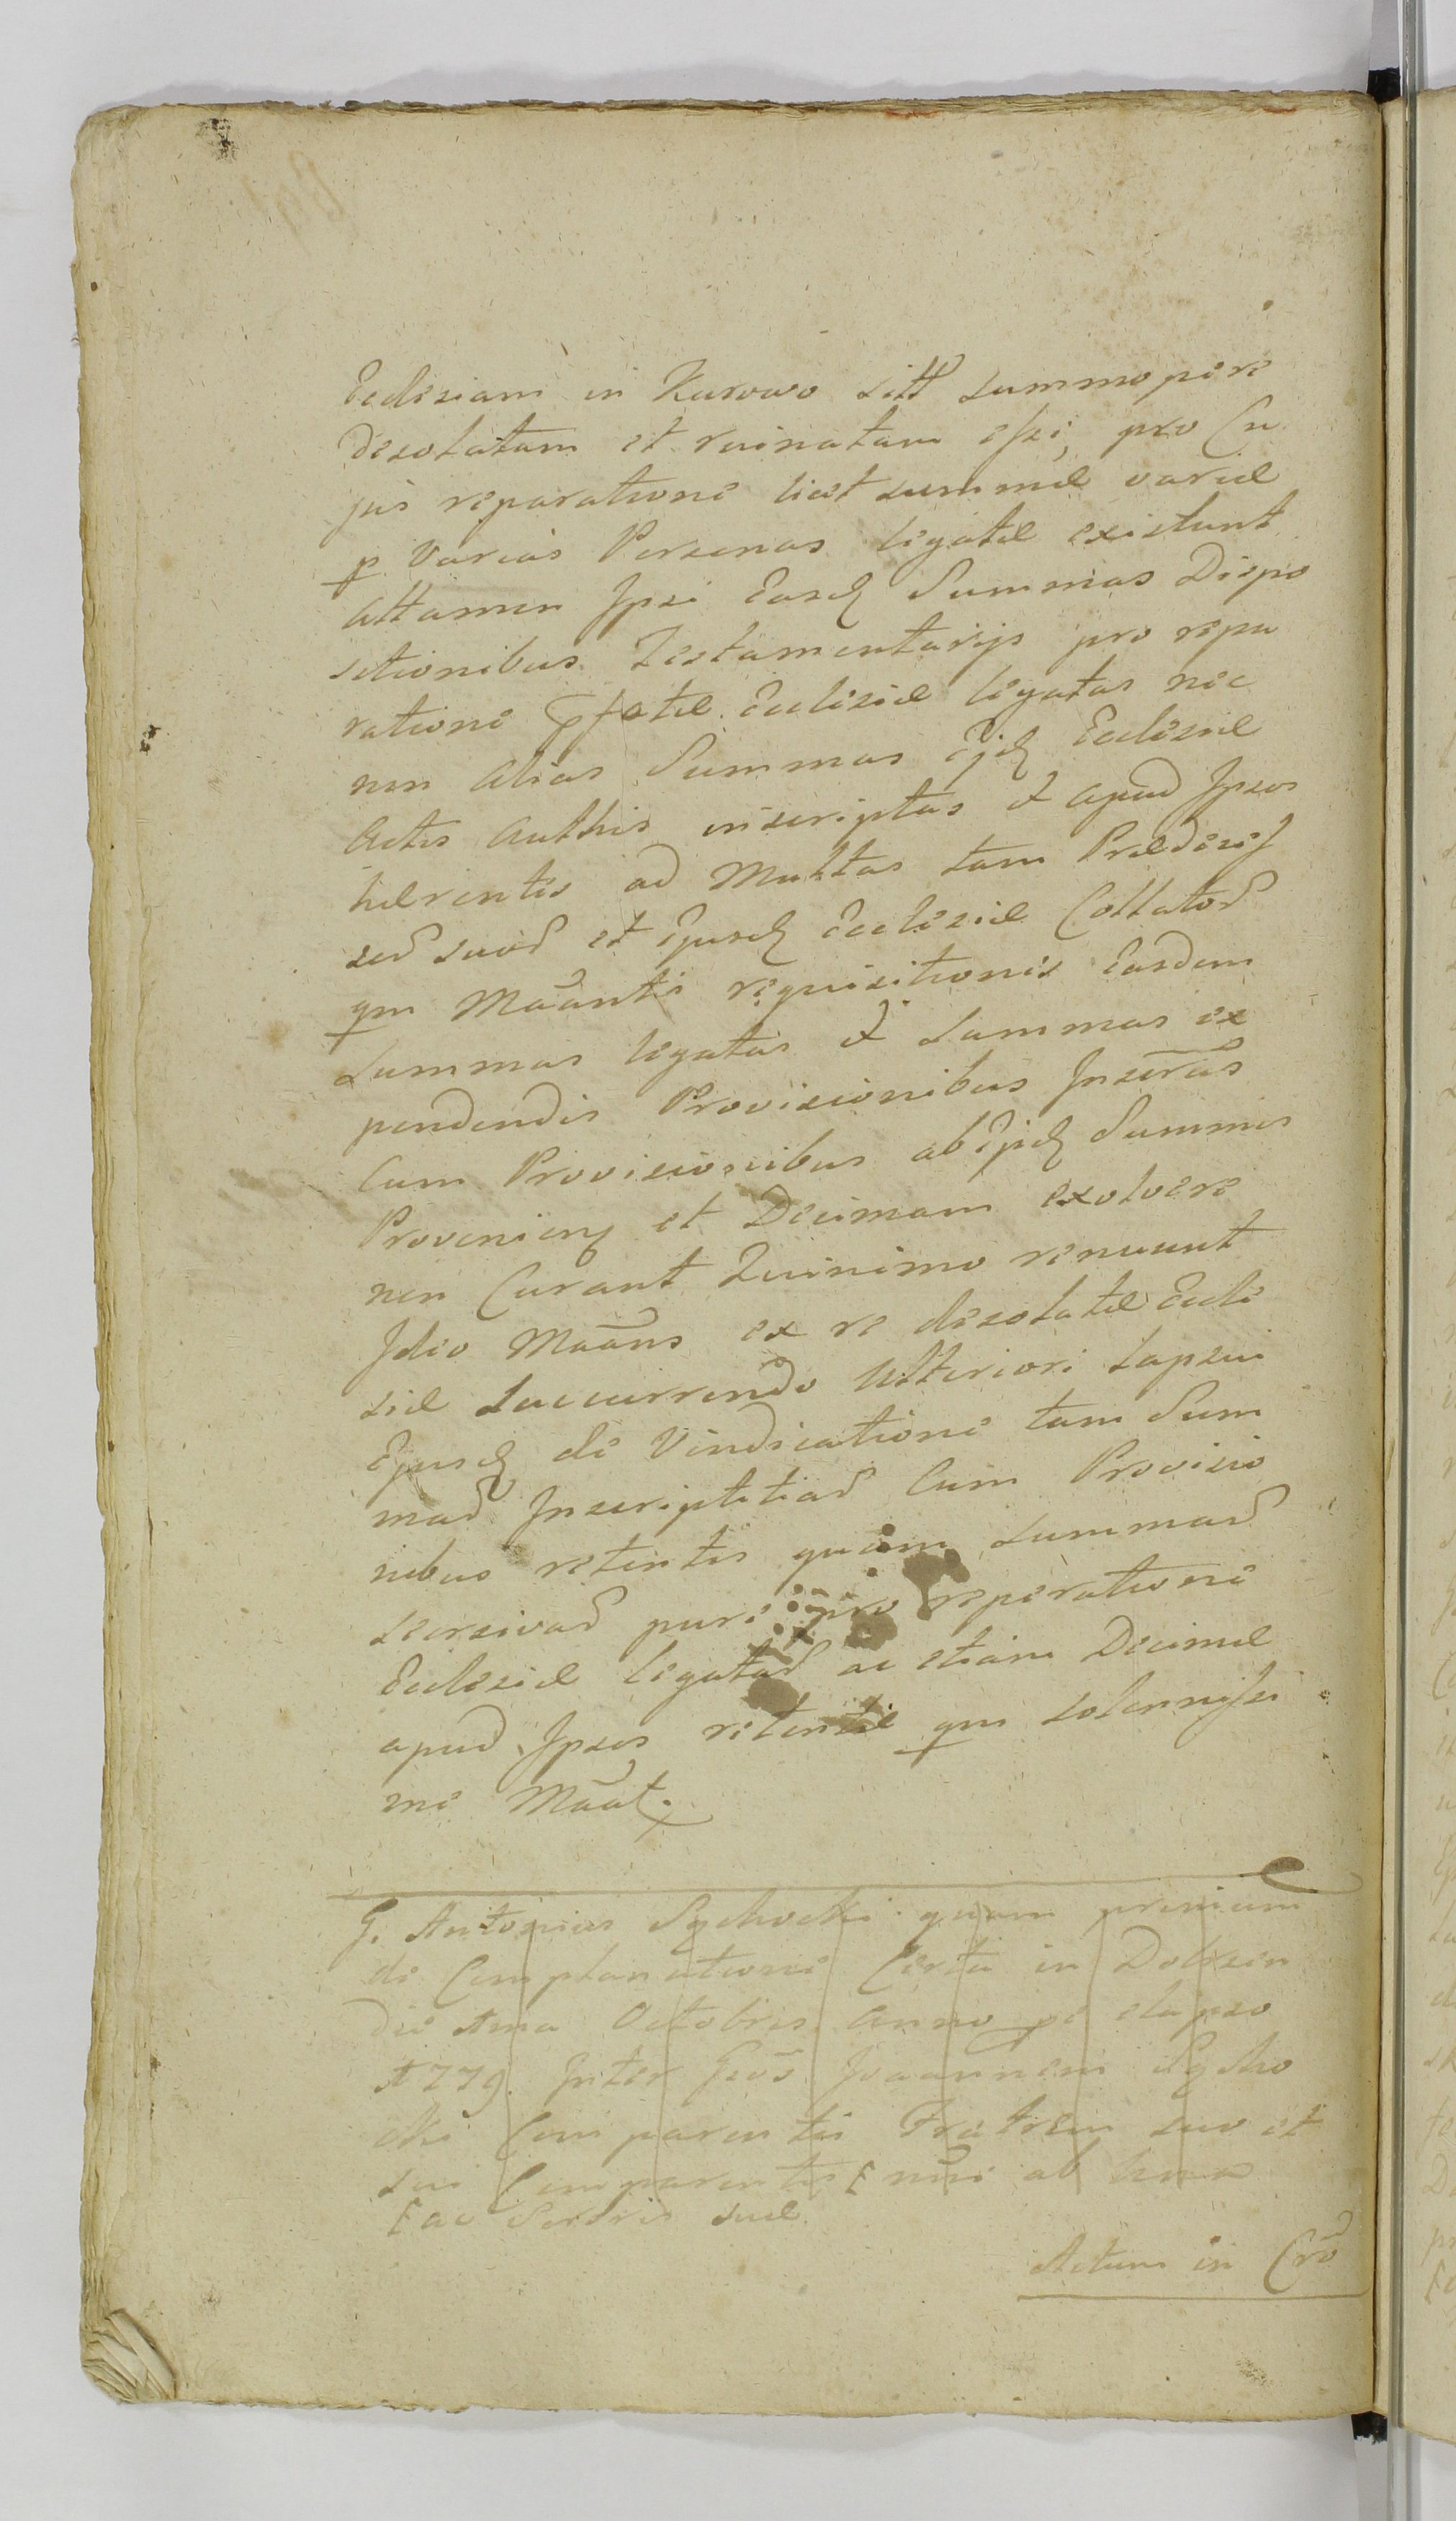 Ecclesiam in Kurowo sitt summopere
Desolatam et ruinatam esse, pro Cu
jus reparatione licet summæ variæ
p Varias Personas legatæ existunt
attamen Ipsi Easq Summas Dispo
sitionibus Testamentarijs pro repa
ratione pfatæ Ecclesiæ legatas nec
non Alias Summas Ejq Ecclesiæ
Actis Authis inscriptas et apud Ipsos
hærentes ad Multas tam Prædeces
sor suor et Ejusq Ecclesiæ Collator
qm Maantis requisitiones Easdem
Summas legatas et Summas ex
pendendis Provisionibus Inscras
Cum Provisionibus ab Ejq Summis
Provenienq et Decimam exolvere
non Curant Quinimo renuunt
Ideo Maans ex re desolatæ Eccle
siæ Succurrendo Ulteriori Lapsui
Ejusq de Vindicatione tam Sum
mar Inscriptitiar Cum Provisio
nibus retentis quam Summar
seorsivar pure pro reparatione
Ecclesiæ legatar ac etiam Decimæ
apud Ipsos retentæ qm solennissi
me Maat.
G. Antonius Sychocki quam primum
de Complanatione Certa in Dobrzen
die 1ma Octobris Anno pe elapso
1779. Inter Gsos Joannem Sycho
cki Comparentis Fratrem suo et
sui Comparentis nni ab una
ac Sororis suæ.
Actum in Cro